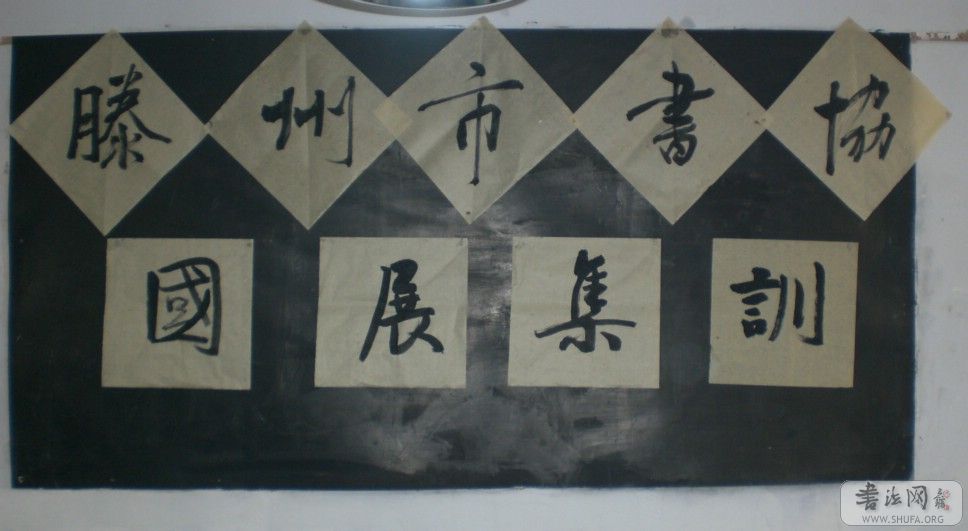 滕州市書協
國展集訓
書法网
WWW.SHUFA.ORG